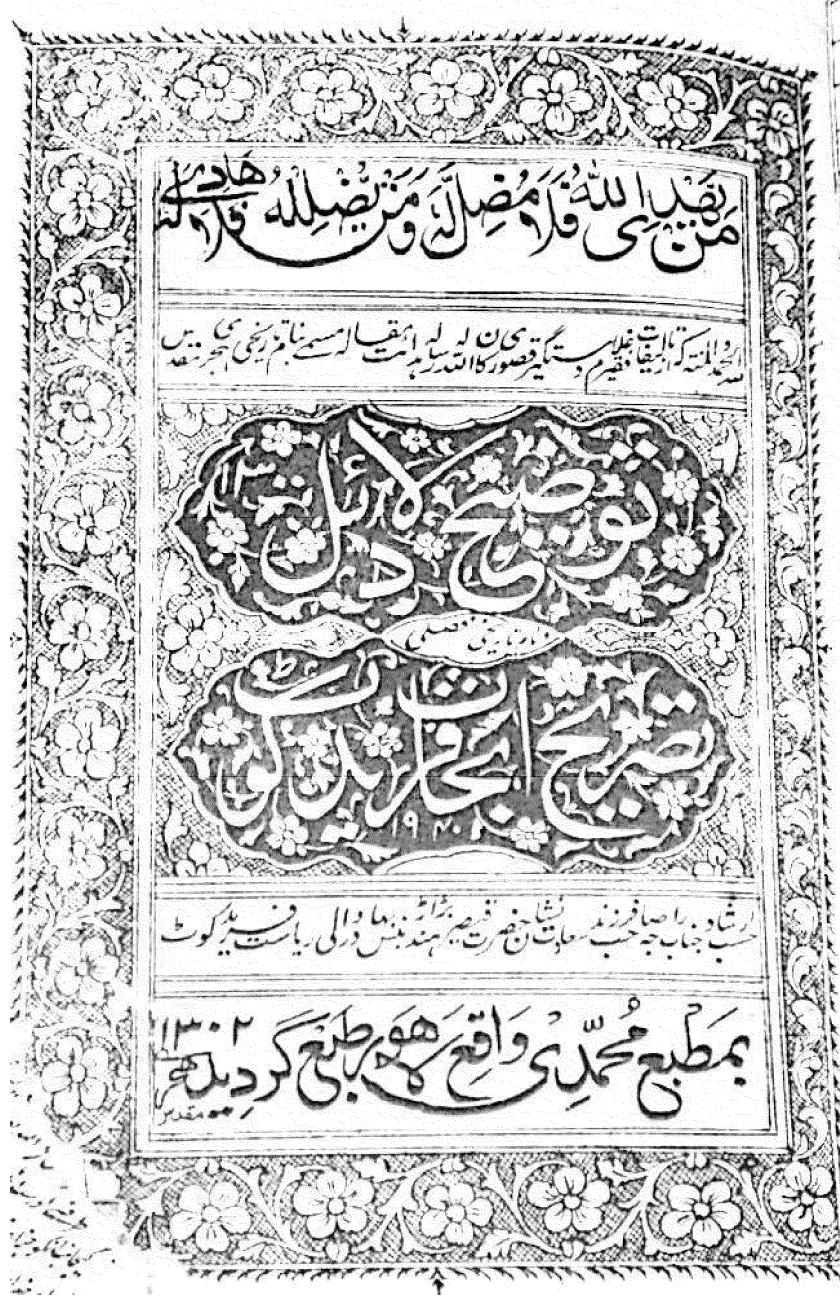 مَن يَهدِی اللّٰهُ فَلَا مُضِلَّ لَهٗ وَمَن يُضلِلهُ فَلَا هَادِیَ لَهٗ
للّٰہ الحمد والمنتہ کہ از تالیفات فقیر غلام دستگیر قصوری کان اللہ لہ رسالہ ہدایت مقالہ مسمے بنام تاریخی ہجری
توضیح دلائل
۱۳
ودر تاریخ فصلی
تصریح ابحاث فریدکوٹ
حسب ارشاد جناب راجہ صاحب فرزند سعادت نشان حضرت قیصر ہند براڑ بنس بہادر والی ریاست فریدکوٹ
بمَطبع مُحمّدِی وَاقِع لَاهَور طبع گردِید
۱۳۰۲